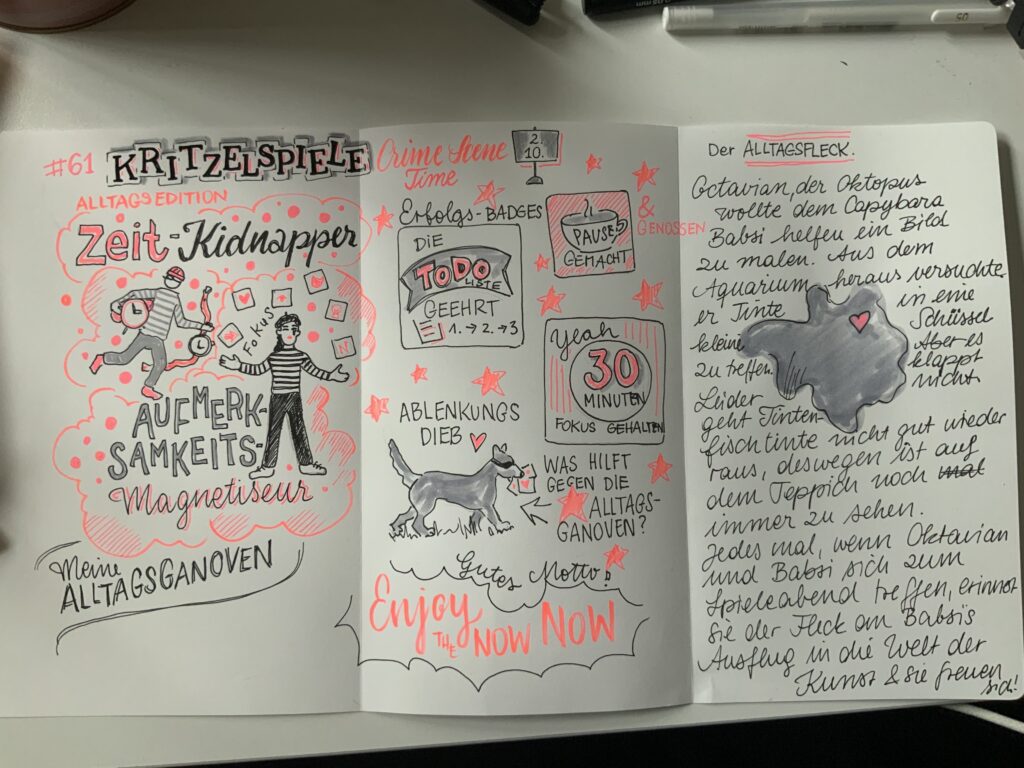 #61 KRITZELSPIELE
ALLTAGSEDITION
Zeit-Kidnapper
Fokus
AUFMERK-
SAMKEITS-
Magnetiseur
Meine
ALLTAGSGANOVEN
Crime Scene
Time
2.
10.
Erfolgs-BADGES
DIE
TODO
LISTE
GEEHRT
1. → 2. → 3
PAUSE
GEMACHT
& GENOSSEN
Yeah
30
MINUTEN
FOKUS GEHALTEN
ABLENKUNGS
DIEB
WAS HILFT
GEGEN DIE
ALLTAGS-
GANOVEN?
Gutes Motto:
Enjoy
THE NOW NOW
Der ALLTAGSFLECK.
Octavian, der Oktopus
wollte dem Capybara
Babsi helfen ein Bild
zu malen. Aus dem
Aquarium heraus versuchte
er Tinte in eine
kleine Schüssel
zu treffen. Aber es
klappt
nicht
Leider
geht Tinten
fischtinte nicht gut wieder
raus, deswegen ist auf
dem Teppich noch mal
immer zu sehen.
Jedes mal, wenn Oktavian
und Babsi sich zum
Spieleabend treffen, erinnert
sie der Fleck an Babsis
Ausflug in die Welt der
Kunst & sie freuen
sich!
05